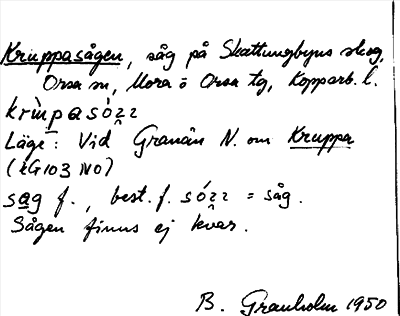 Kruppasågen, såg på Skattungbyns skog,
Orsa sn, Mora o Orsa tg, Kopparb. l.
krùpasózz
Läge: Vid Granån N. om Kruppa
(kG103 NO)
sag f., best. f. sózz = såg.
Sågen finns ej kvar.
B. Granholm 1950